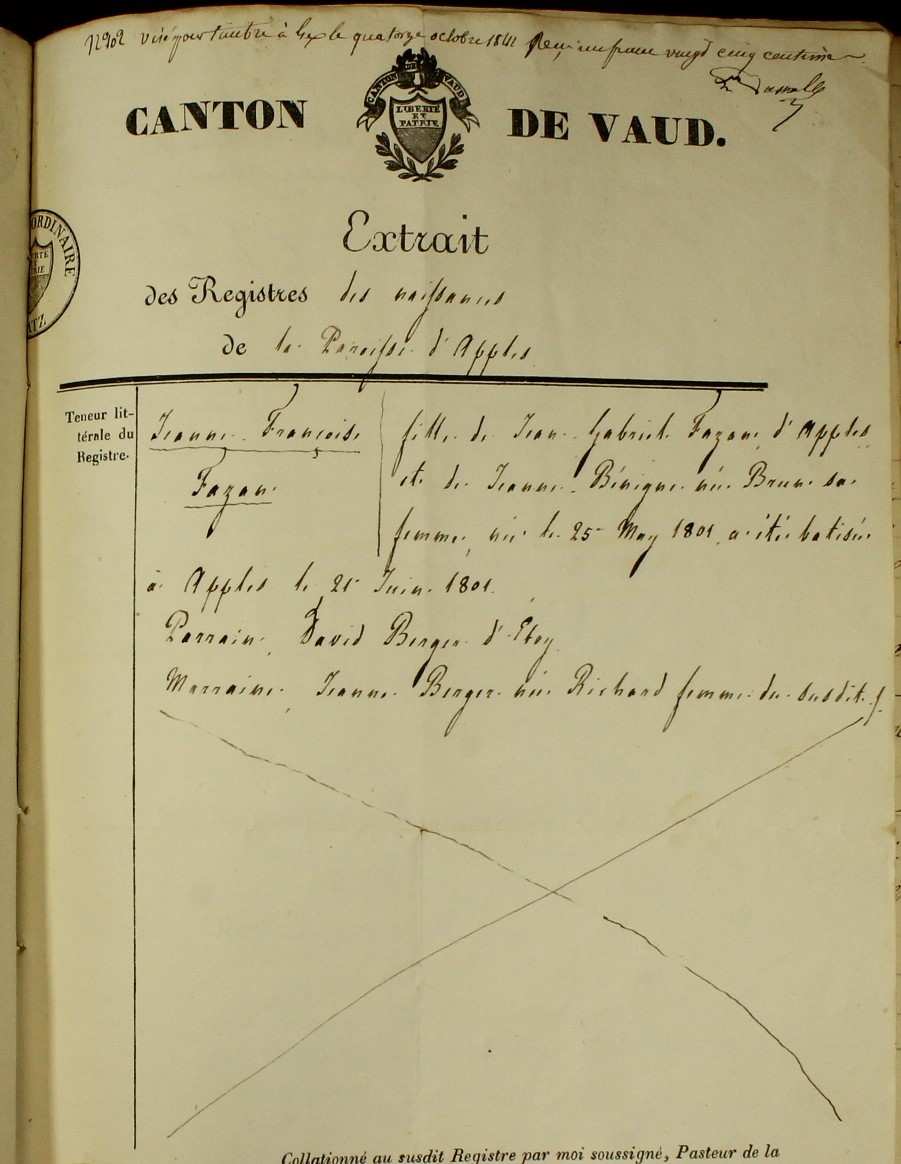 visé pour timbre à Gex le quatorze octobre 1841 Reçu un franc vingt cinq centimes
CANTON DE VAUD
LIBERTÉ
ET
PATRIE
CANTON DE VAUD.
Extrait
ORDINAIRE
des Registres des naissances
de la Paroisse d'Apples
BATZ
Teneur lit-
térale du
Registre.
Jeanne Françoise
Fazan
fille de Jean Gabriel Fazan, d'Apples
et de Jeanne Bénigne née Brun sa
femme, née le 25 May 1801, a été batisée
à Apples le 21 Juin 1801.
Parrain, David Berger d'Etoy
Marraine, Jeanne Berger née Richard femme du susdit.
Collationné au susdit Registre par moi soussigné, Pasteur de la